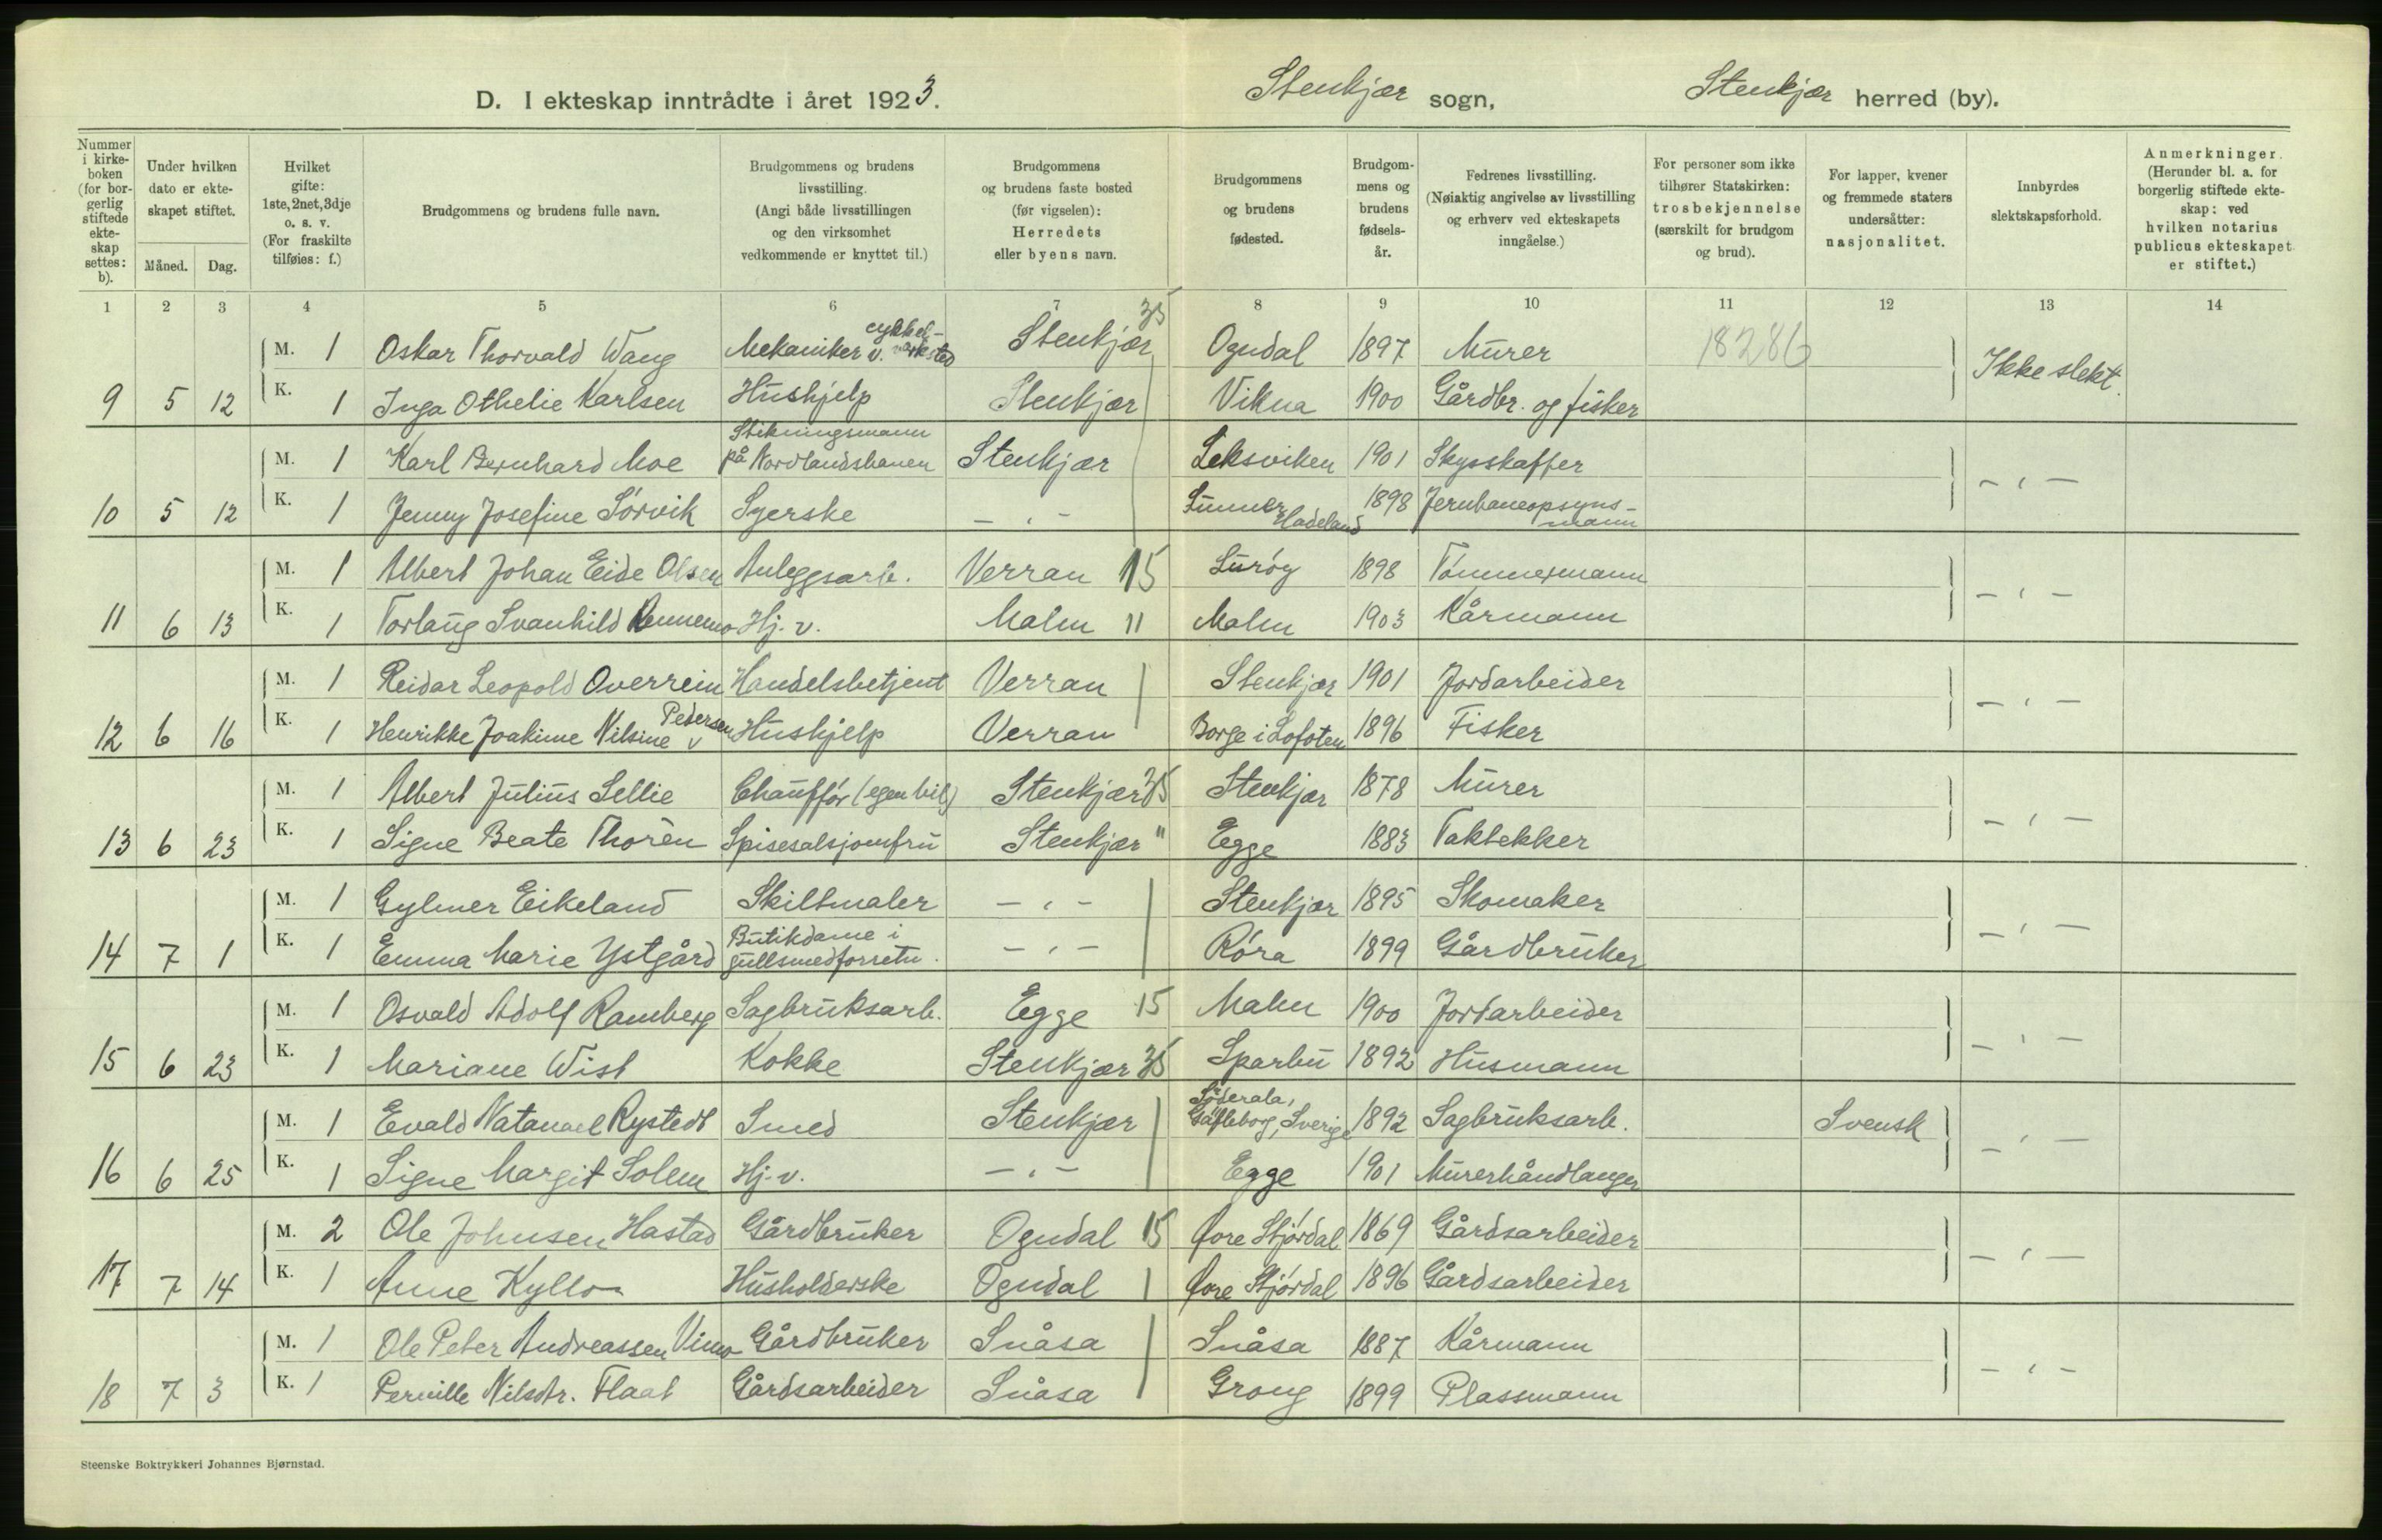 D. I ekteskap inntrådte i året 1923. Stenkjær sogn, Stenkjær herred (by).
Nummer i kirkeboken (for borgerlig stiftede ekteskap settes: b).
Under hvilken dato er ekteskapet stiftet. Måned. Dag.
Hvilket gifte: 1ste, 2net, 3dje o. s. v. (For fraskilte tilføies: f.)
Brudgommens og brudens fulle navn.
Brudgommens og brudens livsstilling. (Angi både livsstillingen og den virksomhet vedkommende er knyttet til.)
Brudgommens og brudens faste bosted (før vigselen): Herredets eller byens navn.
Brudgommens og brudens fødested.
Brudgommens og brudens fødselsår.
Fedrenes livsstilling. (Nøiaktig angivelse av livsstilling og erhverv ved ekteskapets inngåelse.)
For personer som ikke tilhører Statskirken: trosbekjennelse (særskilt for brudgom og brud).
For lapper, kvener og fremmede staters undersåtter: nasjonalitet.
Innbyrdes slektskapsforhold.
Anmerkninger. (Herunder bl. a. for borgerlig stiftede ekteskap: ved hvilken notarius publicus ekteskapet er stiftet.)
1 2 3 4 5 6 7 8 9 10 11 12 13 14
M. 1 Oskar Thorvald Wang Mekaniker v. cykkel-verksted Stenkjær 35 Ogndal 1897 Murer 18286 Ikke slekt.
9 5 12 K. 1 Inga Othelie Karlsen Hushjelp Stenkjær Vikna 1900 Gårdbr. og fisker
M. 1 Karl Bernhard Moe Stikningsmann på Nordlandsbanen Stenkjær Leksviken 1901 Skysskaffer - " -
10 5 12 K. 1 Jenny Josefine Sørvik Syerske - " - Lunner Hadeland 1898 Jernbaneopsynsmann
M. 1 Albert Johan Eide Olsen Anleggsarb. Verran 15 Lurøy 1898 Tømmermann - " -
11 6 13 K. 1 Torlaug Svanhild Rennemo Hj. v. Malm 11 Malm 1903 Kårmann
M. 1 Reidar Leopold Overrein Handelsbetjent Verran Stenkjær 1901 Jordarbeider - " -
12 6 16 K. 1 Henrikke Joakime Nilsine Pedersen Hushjelp Verran Borge i Lofoten 1896 Fisker
M. 1 Albert Julius Sellie Chauffør (egen bil) Stenkjær 35 Stenkjær 1878 Murer - " -
13 6 23 K. 1 Signe Beate Thorèn Spisesalsjomfru Stenkjær " Egge 1883 Taktekker
M. 1 Gylmer Eikeland Skiltmaler - " - Stenkjær 1895 Skomaker - " -
14 7 1 K. 1 Emma Marie Ystgård Butikdame i gullsmedforretn. - " - Røra 1899 Gårdbruker
M. 1 Osvald Adolf Ramberg Sagbruksarb. Egge 15 Malm 1900 Jordarbeider - " -
15 6 23 K. 1 Mariane Wist Kokke Stenkjær 35 Sparbu 1892 Husmann
M. 1 Evald Natanael Rystedt Smed Stenkjær Söderala, Gäfleborg, Sverige 1892 Sagbruksarb. Svensk - " -
16 6 25 K. 1 Signe Margit Solem Hj. v. - " - Egge 1901 Murerhåndlanger
M. 2 Ole Johnsen Hastad Gårdbruker Ogndal 15 Øvre Stjørdal 1869 Gårdsarbeider - " -
17 7 14 K. 1 Anne Kyllo Husholderske Ogndal Øvre Stjørdal 1896 Gårdsarbeider
M. 1 Ole Peter Andreassen Vimo Gårdbruker Snåsa Snåsa 1887 Kårmann - " -
18 7 3 K. 1 Pernille Nilsdtr. Flaat Gårdsarbeider Snåsa Grong 1899 Plassmann
Steenske Boktrykkeri Johannes Bjørnstad.